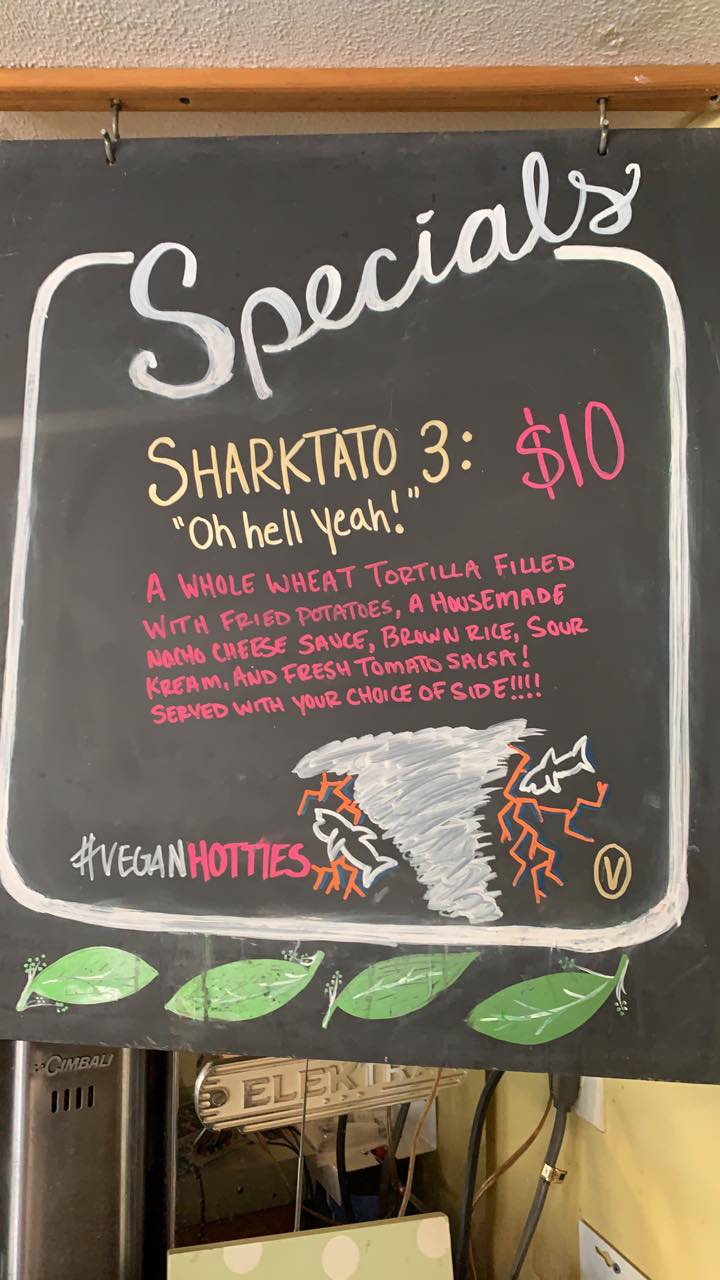 Specials
SHARKTATO 3: $10
"Oh hell yeah!"
A WHOLE WHEAT TORTILLA FILLED
WITH FRIED POTATOES, A HOUSEMADE
NACHO CHEESE SAUCE, BROWN RICE, SOUR
KREAM, AND FRESH TOMATO SALSA!
SERVED WITH YOUR CHOICE OF SIDE!!!!
#VEGANHOTTIES
V
CIMBALI
ELEKTRA